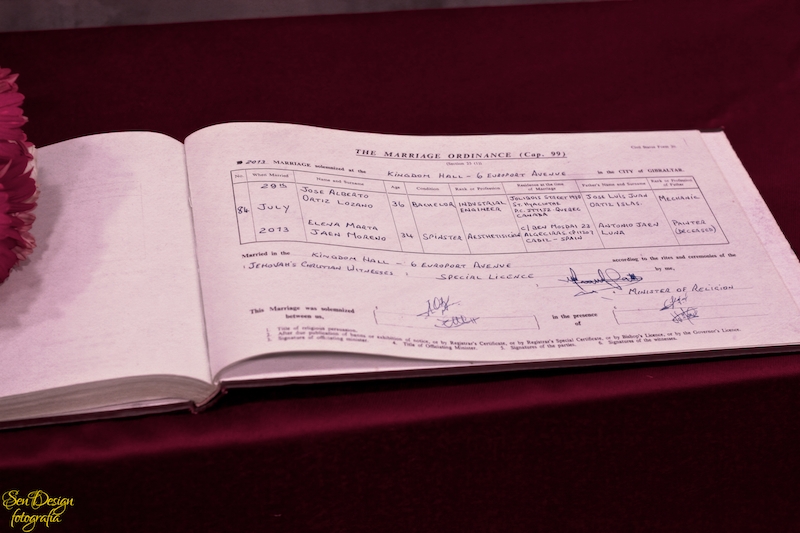 THE MARRIAGE ORDINANCE (Cap. 99)
(Section 22 (1))
2013. MARRIAGE solemnized at the KINGDOM HALL - 6 EUROPORT AVENUE in the CITY of GIBRALTAR.
No. When Married Name and Surname Age Condition Rank or Profession Residence at the time of Marriage Father's Name and Surname Rank or Profession of Father
84
29th
JULY
2013
JOSE ALBERTO
ORTIZ LOZANO
36 BACHELOR INDUSTRIAL
ENGINEER
STREET
ST. HYACINTHE
QUEBEC
CANADA
JOSE LUIS JUAN
ORTIZ ISLAS
MECHANIC
ELENA MARTA
JAEN MORENO
34 SPINSTER
ALGECIRAS
CADIZ - SPAIN
ANTONIO JAEN
LUNA
PAINTER
(DECEASED)
Married in the KINGDOM HALL - 6 EUROPORT AVENUE according to the rites and ceremonies of the
JEHOVAH'S CHRISTIAN WITNESSES SPECIAL LICENCE by me,
MINISTER OF RELIGION
This Marriage was solemnized
between us,
in the presence
of
1. Title of religious persuasion.
2. After due publication of banns or exhibition of notice, or by Registrar's Certificate, or by Registrar's Special Certificate, or by Bishop's Licence, or by the Governor's Licence.
3. Signature of officiating minister. 4. Title of Officiating Minister. 5. Signatures of the parties. 6. Signatures of the witnesses.
Sen Design
fotografía